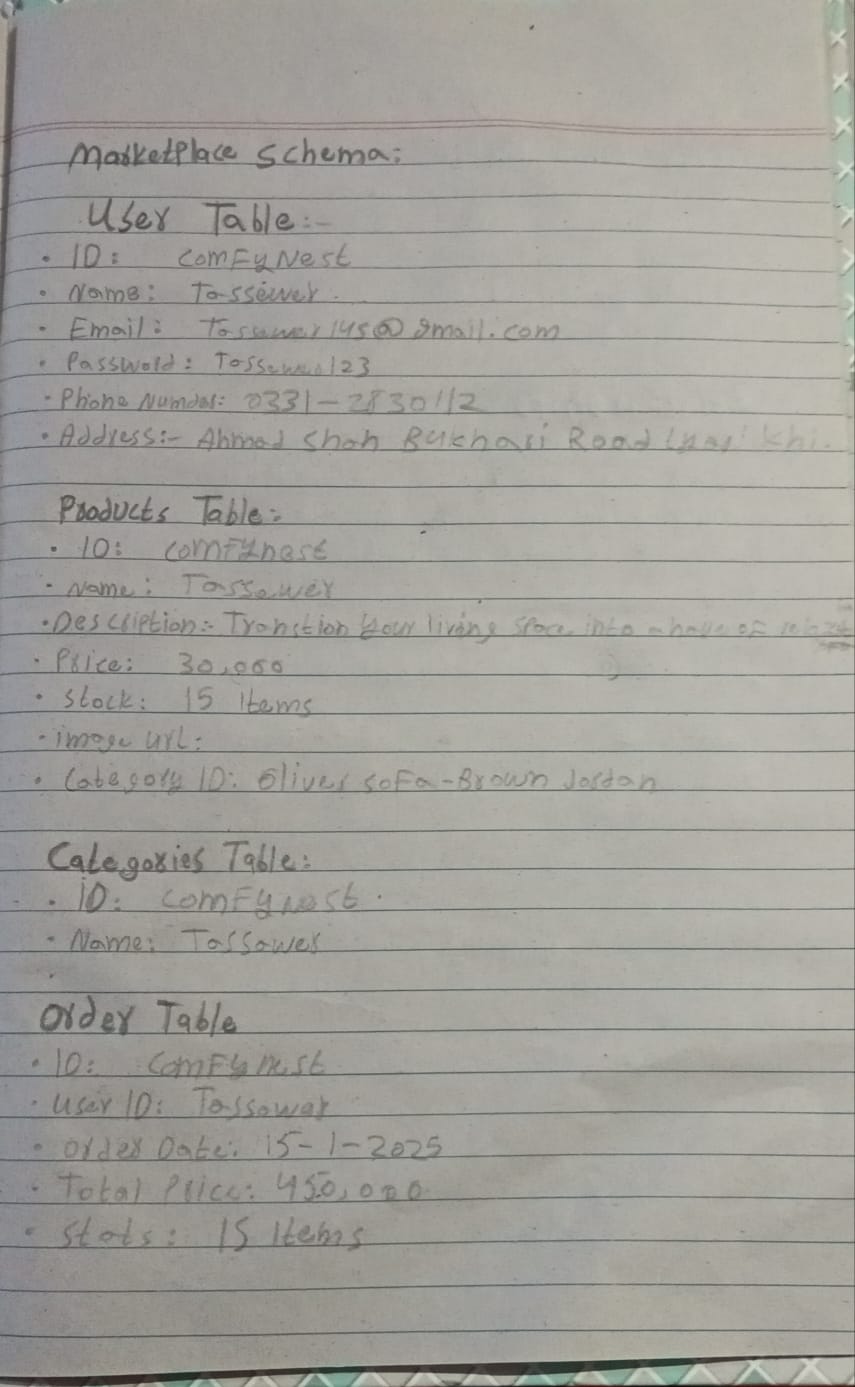 Marketplace Schema:
User Table:-
• ID: ComFyNest
• Name: Tassawer.
• Email: @gmail.com
• Password: 123
• Phone Number: 0331-2830112
• Address:- Ahmad Shah Bukhari Road Khi.
Products Table:-
• ID: ComFynest
• Name: Tassawer
• Description:- Transtion your living space into a have of
• Price: 30,000
• Stock: 15 Items
• image url:
• Category ID: Oliver SoFa-Brown Jordan
Categories Table:
• ID: ComFynest
• Name: Tassawer
Order Table
• ID: ComFynest
• User ID: Tassawer
• Order Date: 15-1-2025
• Total Price: 450,000
• Stats: 15 Items